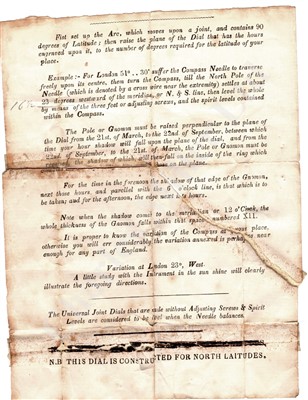 Fist set up the Arc, which moves upon a joint, and contains 90
degrees of Latitude; then raise the plane of the Dial that has the hours
engraved upon it, to the number of degrees required for the latitude of your
place.
Example:- For London 51°.. 30' suffer the Compass Needle to traverse
freely upon its centre, then turn the Compass, till the North Pole of the
Needle (which is denoted by a cross wire near the extremity) settles at about
23 degrees westward of the meridian, or N. & S. line, then level the whole
by means of the three feet or adjusting screws, and the spirit levels contained
within the Compass.
The Pole or Gnomon must be raised perpendicular to the plane of
the Dial from the 21st. of March, to the 22nd of September, between which
time your hour shadow will fall upon the plane of the dial, and from the
22nd of September, to the 21st. of March, the Pole or Gnomon must be
the shadow of which, will then fall on the inside of the ring which
on the plane.
For the time in the forenoon the shadow of that edge of the Gnomon,
next those hours, and parrellel with the 6 o'clock line, is that which is to
be taken; and for the afternoon, the edge next hours.
Note when the shadow comes to the meridian or 12 o'Clock, the
whole thickness of the Gnomon falls within that space numbered XII.
It is proper to know the variation of the Compass at place,
otherwise you will err considerably the variation annexed is near
enough for any part of England.
Variation at London 23°, West.
A little study with the Intrument in the sun shine will clearly
illustrate the foregoing directions.
The Universal Joint Dials that are made without Adjusting Screws & Spirit
Levels are considered to be level when the Needle balances.
N.B THIS DIAL IS CONSTRUCTED FOR NORTH LAITUDES.